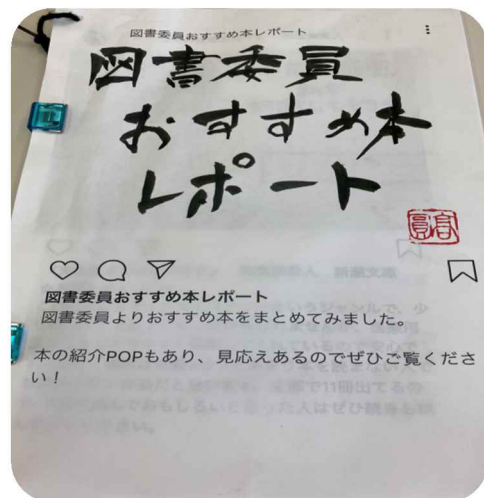 図書委員おすすめ本レポート
図書委員
おすすめ本
レポート
図書委員おすすめ本レポート
図書委員よりおすすめ本をまとめてみました。
本の紹介POPもあり、見応えあるのでぜひご覧くださ
い！